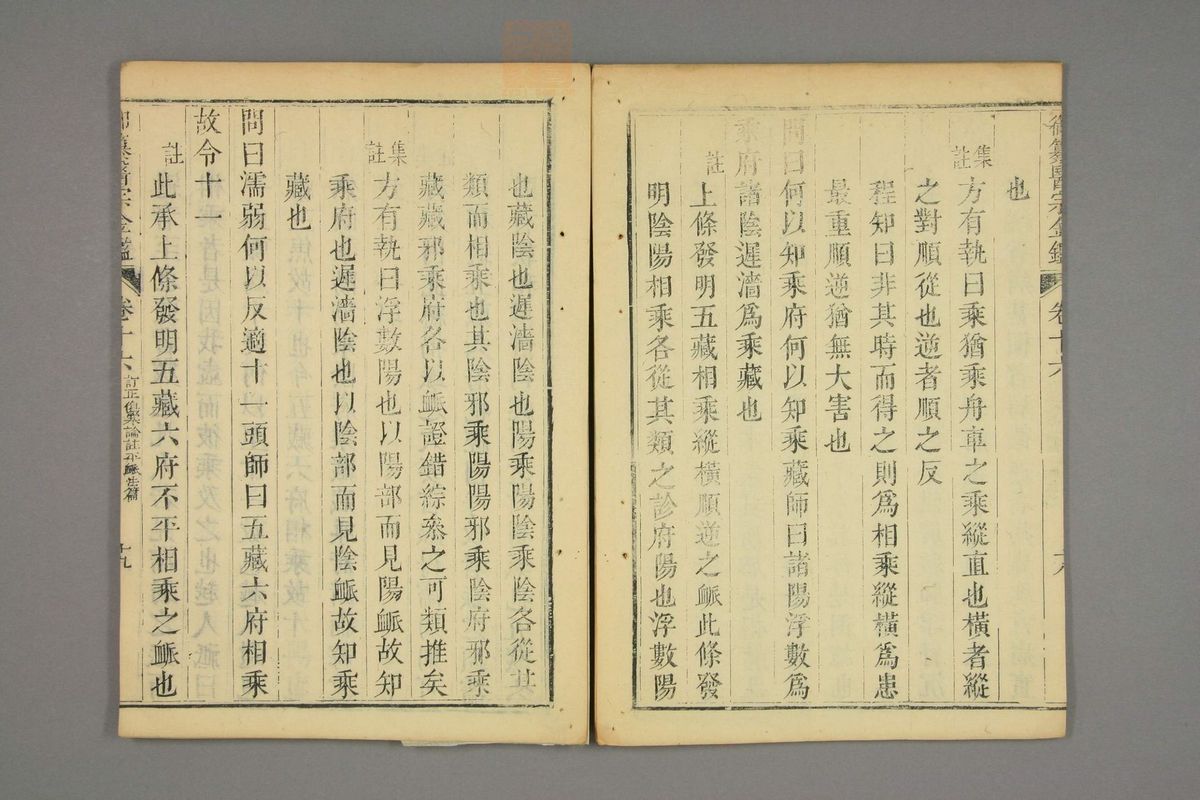 御纂醫宗金鑑 卷十六 十八
也
集註
方有執曰乘猶乘舟車之乘縱直也橫者縱
之對順從也逆者順之反
程知曰非其時而得之則爲相乘縱橫爲患
最重順逆猶無大害也
問曰何以知乘府何以知乘藏師曰諸陽浮數爲
乘府諸陰遲濇爲乘藏也
註
上條發明五藏相乘縱橫順逆之衇此條發
明陰陽相乘各從其類之診府陽也浮數陽
也藏陰也遲濇陰也陽乘陽陰乘陰各從其
類而相乘也其陰邪乘陽陽邪乘陰府邪乘
藏藏邪乘府各以衇證錯綜叅之可類推矣
集註
方有執曰浮數陽也以陽部而見陽衇故知
乘府也遲濇陰也以陰部而見陰衇故知乘
藏也
問曰濡弱何以反適十一頭師曰五藏六府相乘
故令十一
註
此承上條發明五藏六府不平相乘之衇也
御纂醫宗金鑑 卷十六 訂正傷寒論註平衇法篇 十九